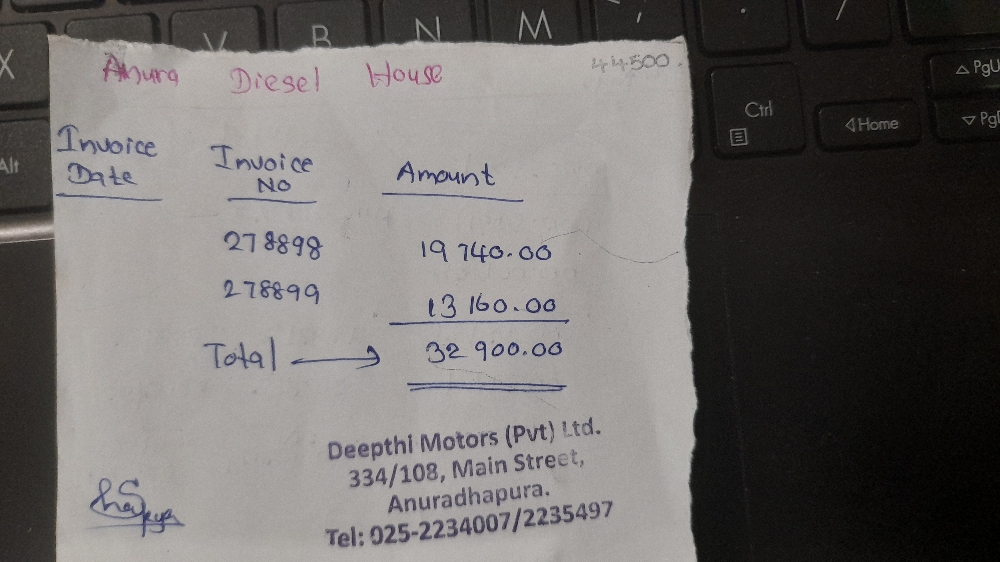 X V B N M , . /
Alt
Ctrl
◁Home
△ PgU
▽ PgD
Anura Diesel House
44500.
Invoice Date
Invoice No
Amount
278898 19 740.00
278899 13 160.00
Total → 32 900.00
Deepthi Motors (Pvt) Ltd.
334/108, Main Street,
Anuradhapura.
Tel: 025-2234007/2235497